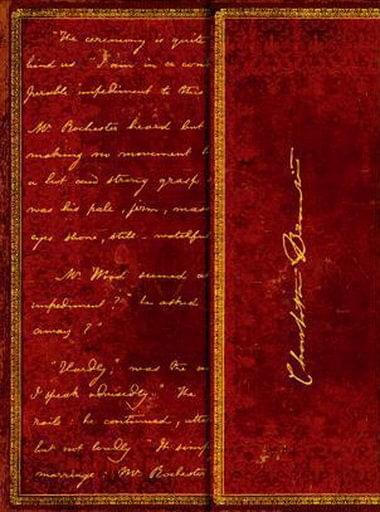 "The ceremony is quite
hind us. "I am in a con
perable impediment to this
Mr Rochester heard but
making no movement
a hot and strong grasp
was his pale, firm, mas
eyes shone, still - watchful
Mr Wood seemed a
impediment?" he asked
away?"
"Hardly," was the an
I speak advisedly." The
rails: he continued, utte
but not loudly "It simp
marriage: Mr Rochester
Charlotte Brontë